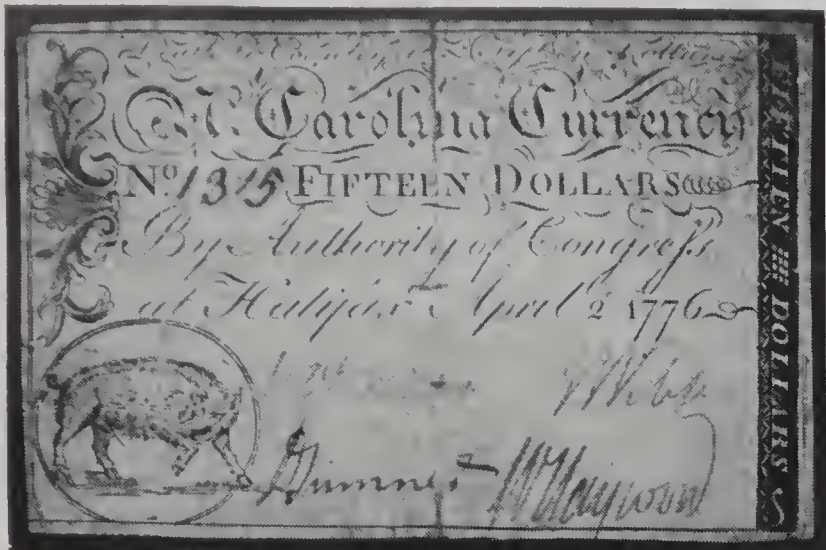 N. Carolina Currency
No 1315 FIFTEEN DOLLARS
By Authority of Congreſs
at Halifax April 2 1776
J Webb
Sumner W Haywood
FIFTEEN DOLLARS